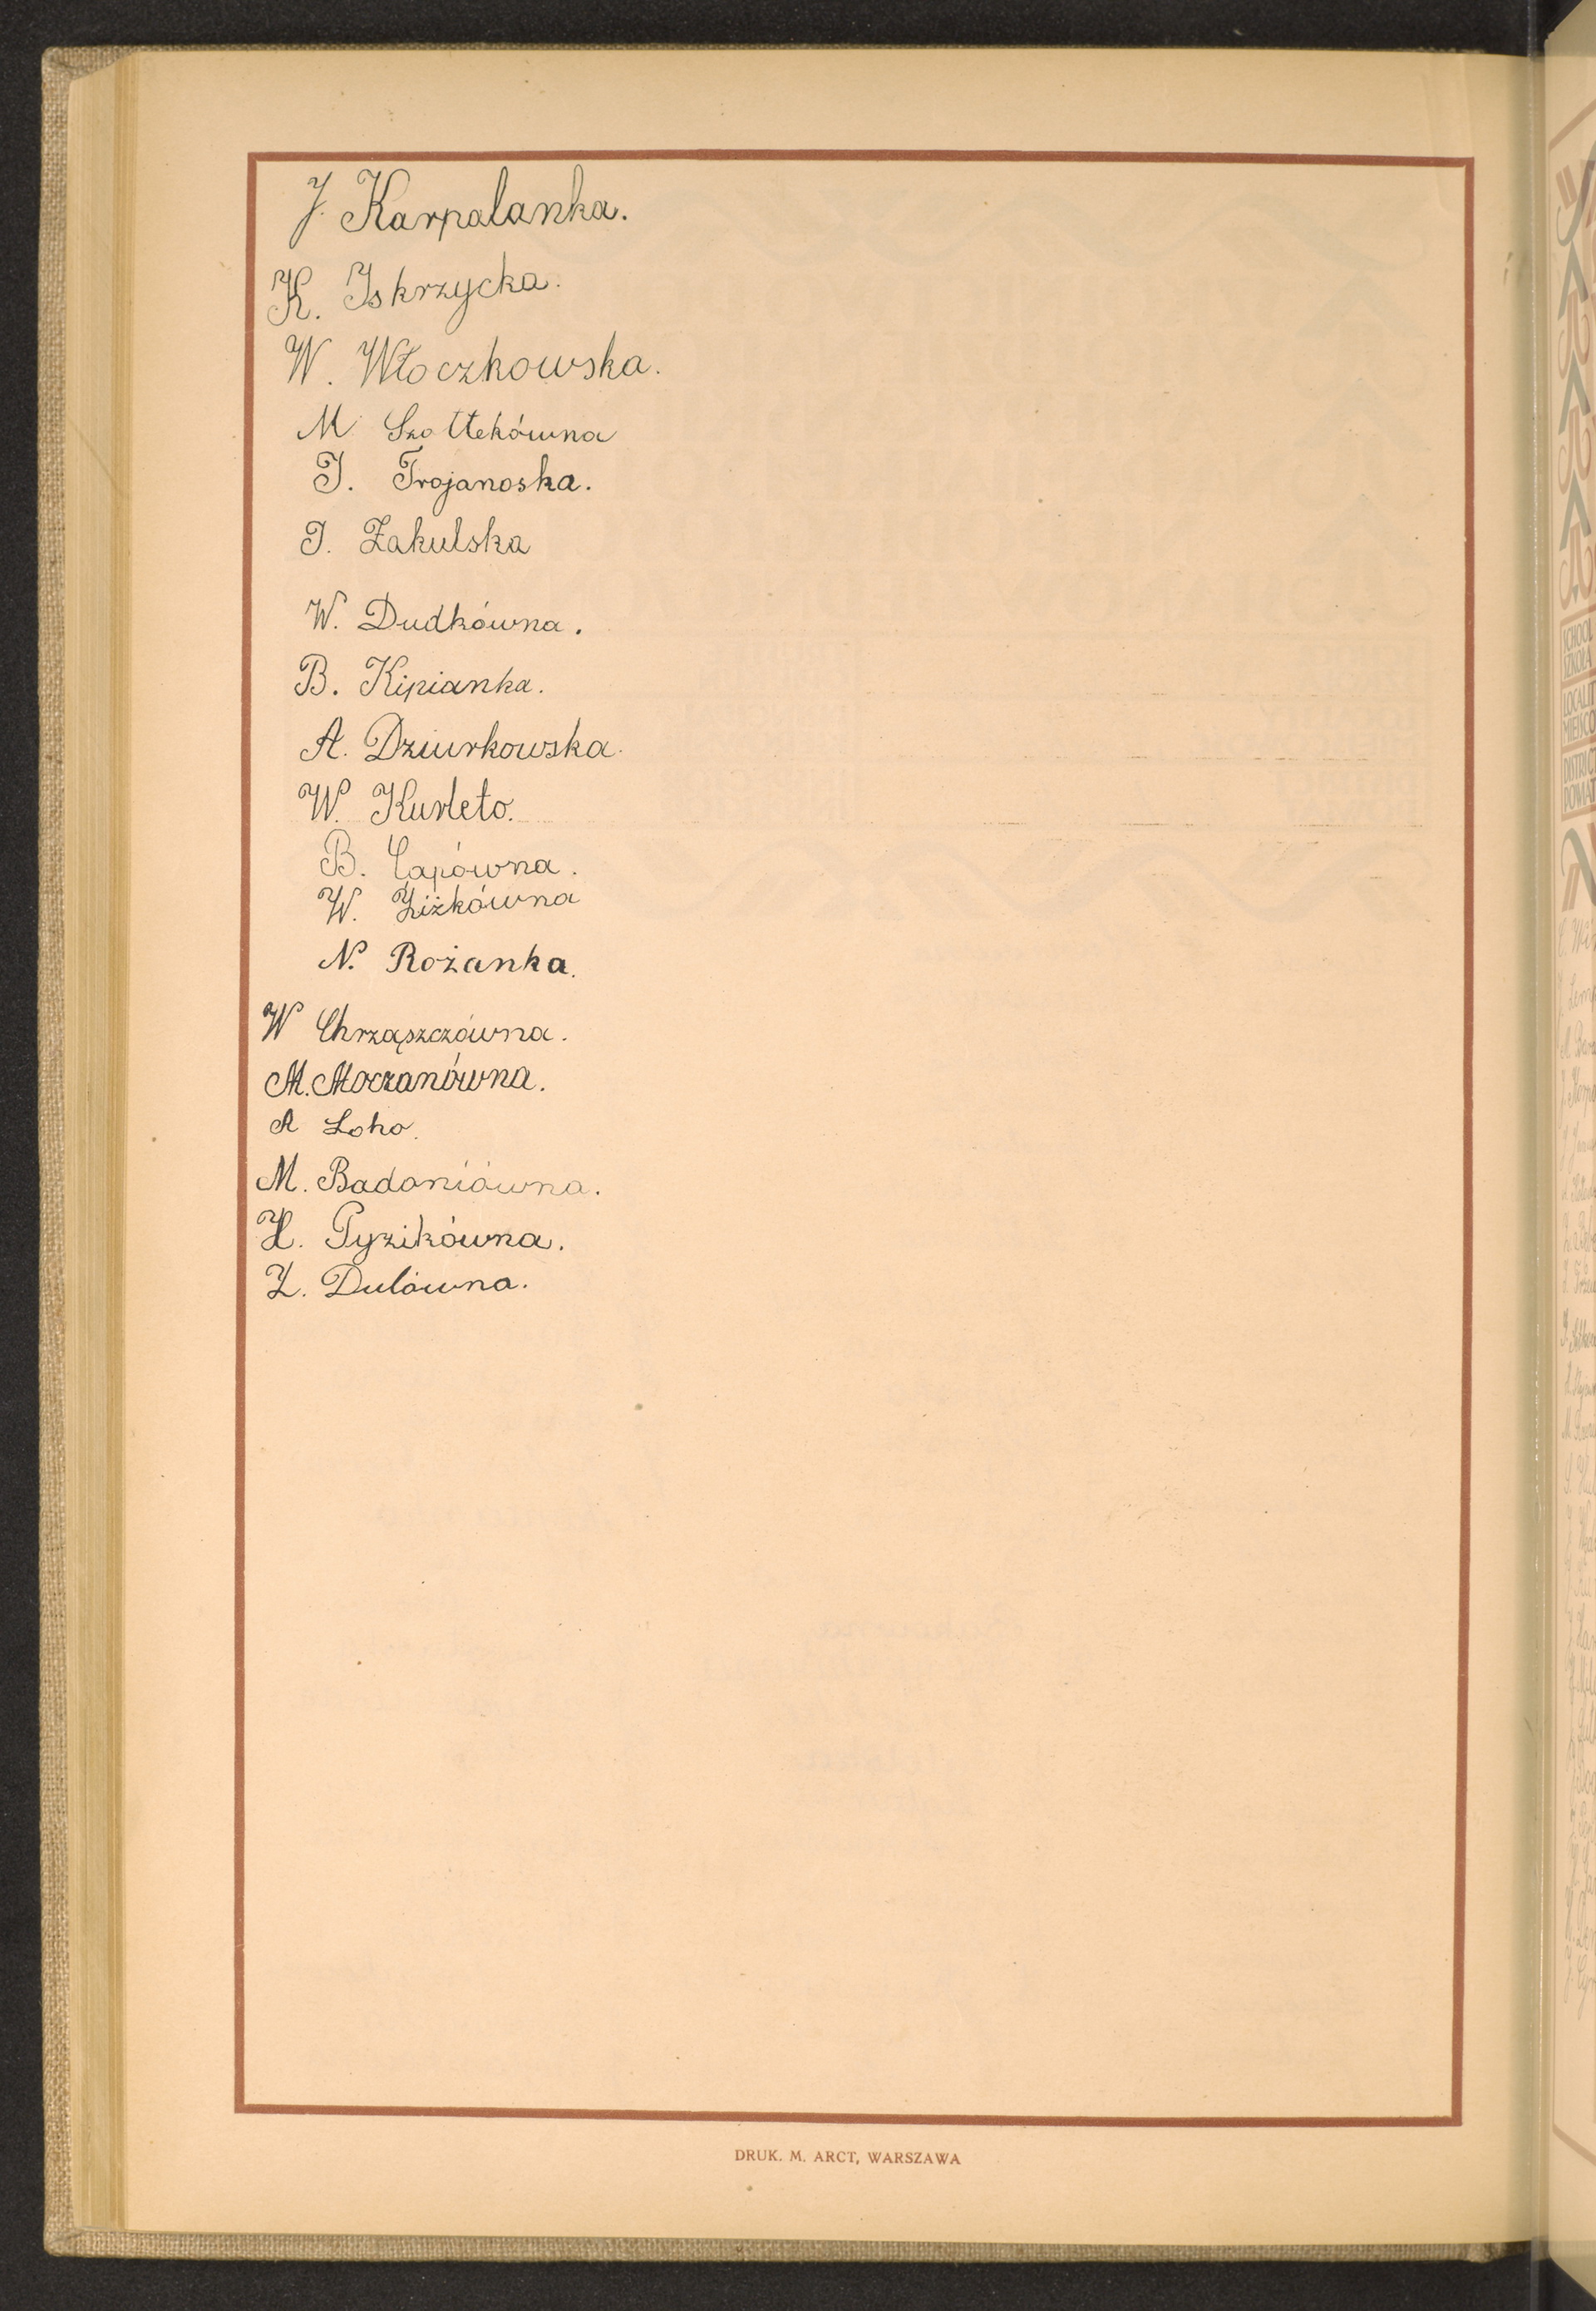 J. Karpalanka.
K. Iskrzycka.
W. Włoczkowska.
M. Szołtekówna
J. Trojanoska.
J. Zakulska
W. Dudkówna.
B. Kipianka.
A. Dziurkowska.
W. Kurleto.
B. Capówna.
W. Ziżkówna
N. Rożanka.
W Chrząszczówna.
M. Moczanówna.
A Loho.
M. Badoniówna.
H. Pyzikówna.
Z. Dulówna.
DRUK. M. ARCT, WARSZAWA
SCHOOL
SZKOŁA